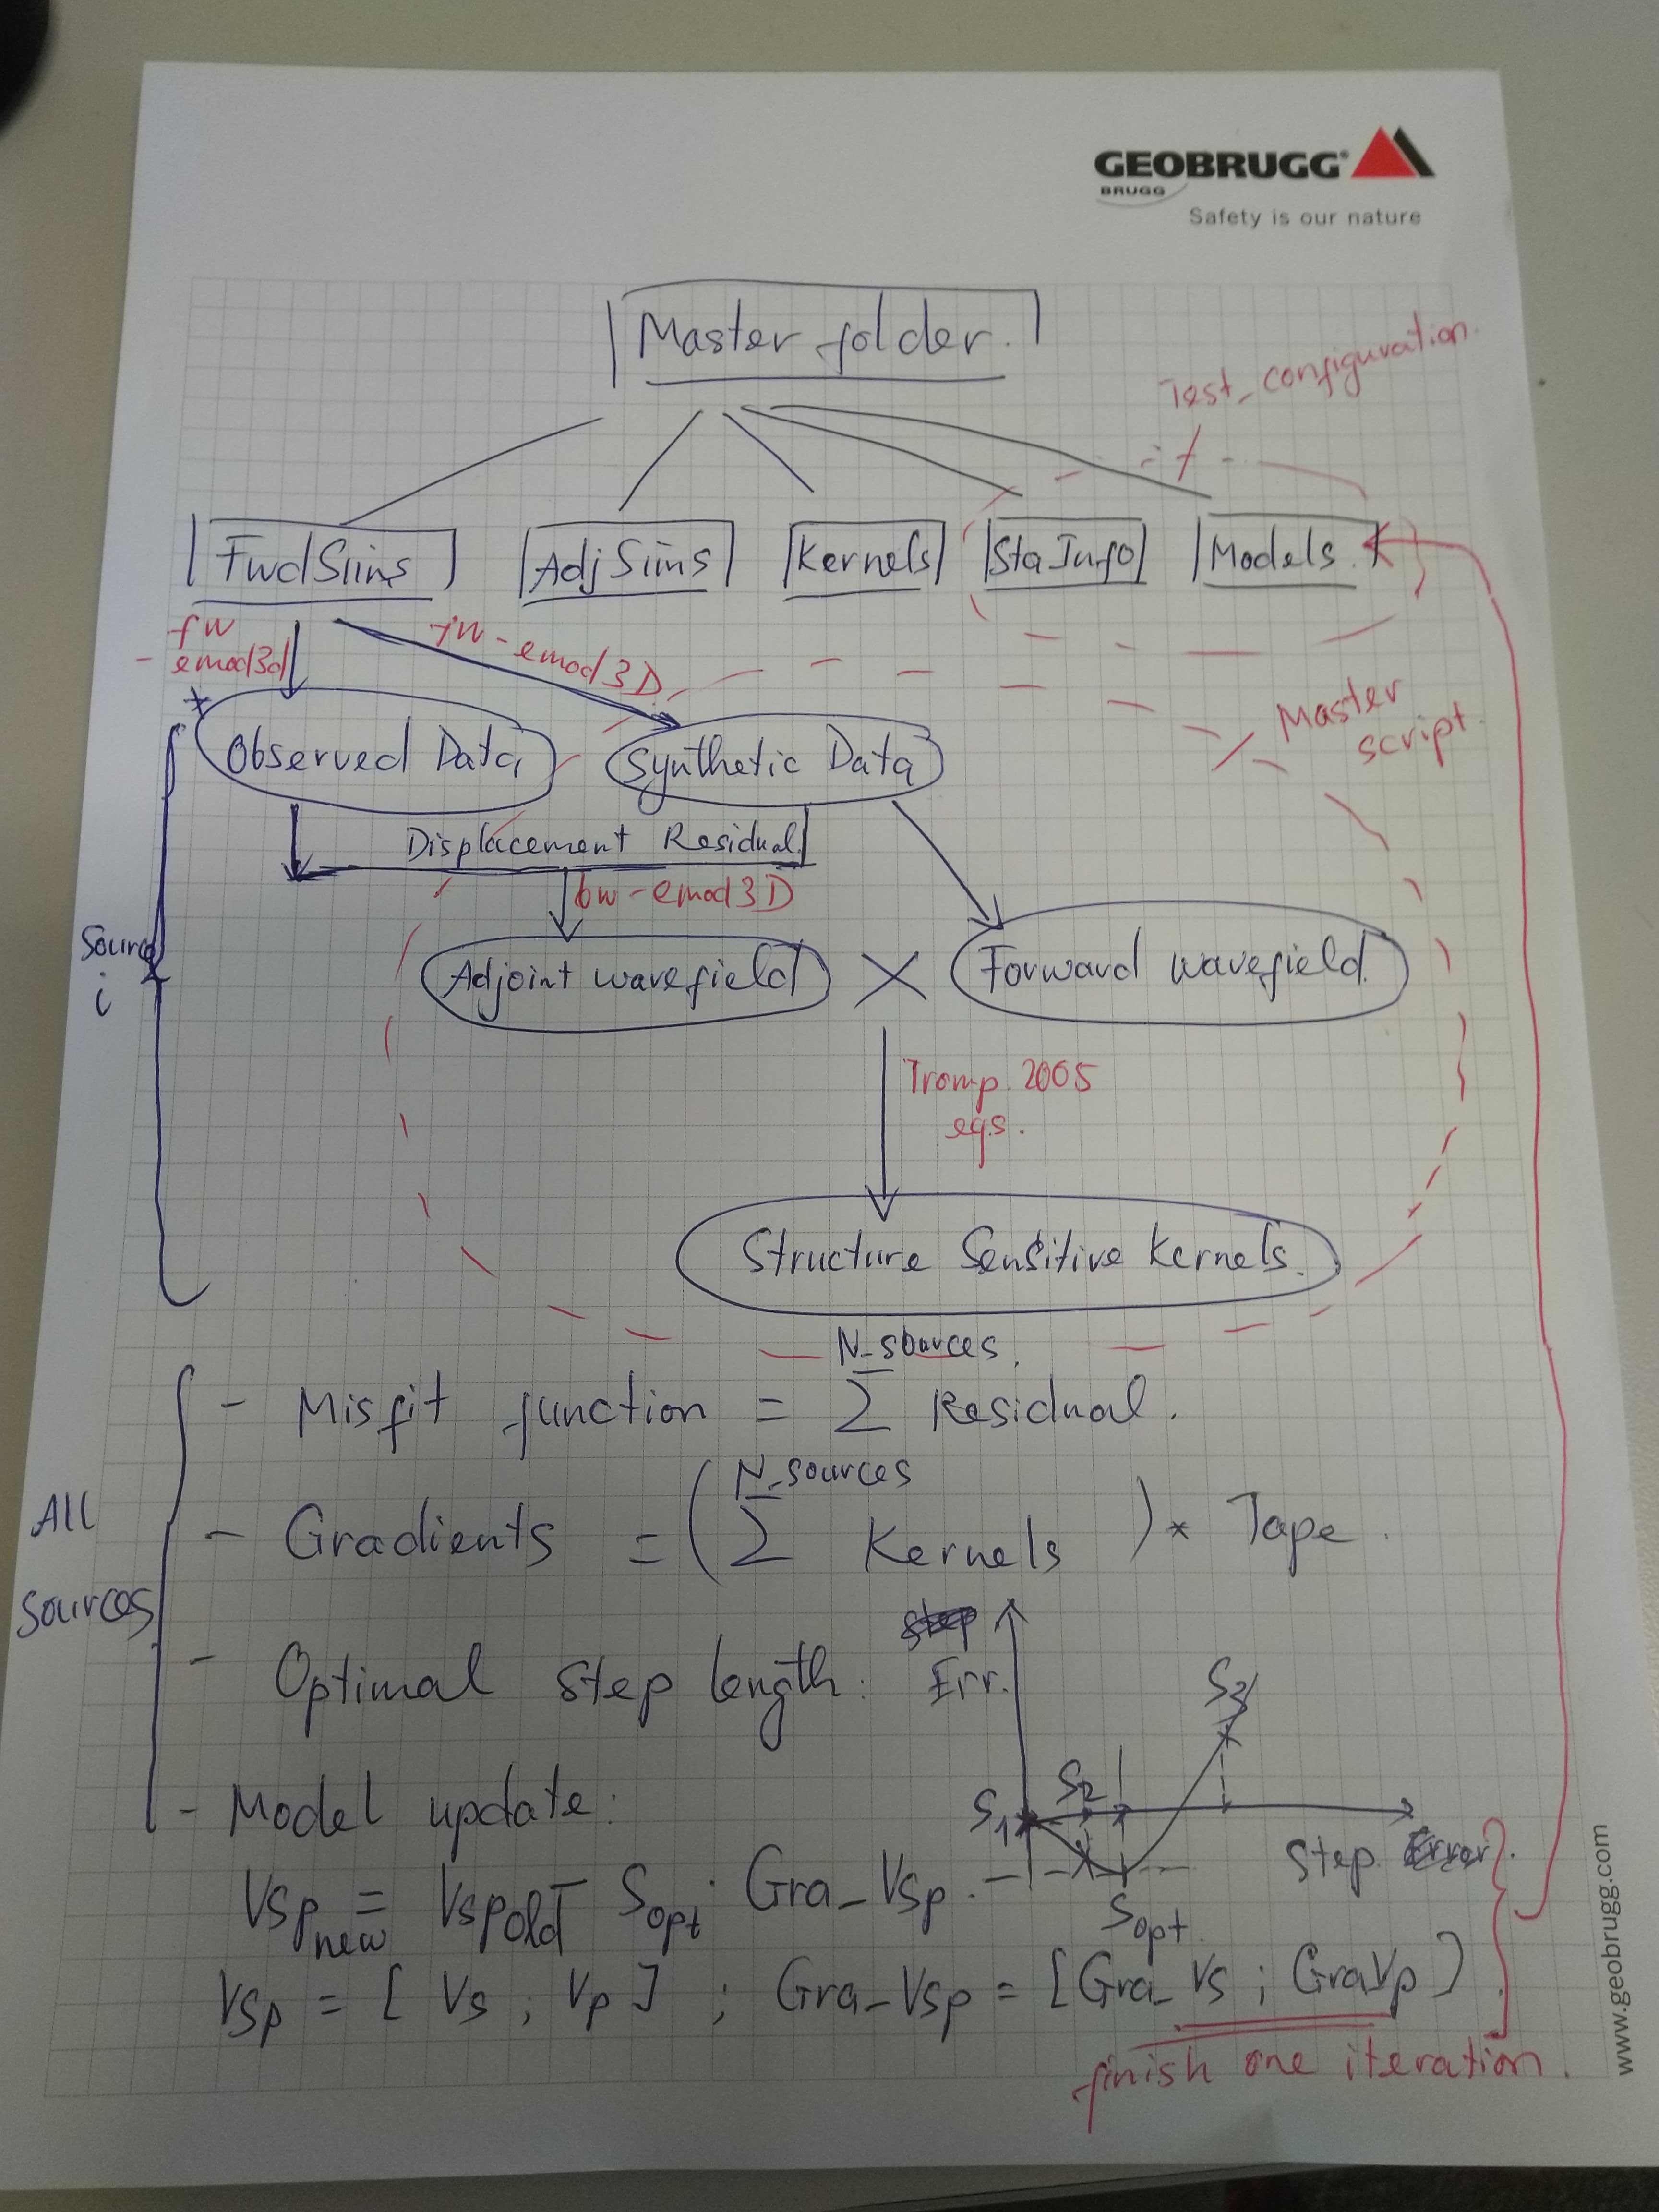 GEOBRUGG
BRUGG
Safety is our nature
Master folder.
Test_configuration.
FwdSims
AdjSims
Kernels
StaInfo
Models.
fw
-emod3d
fw-emod3D
Master
script.
Observed Data
Synthetic Data
Displacement Residual
bw-emod3D
Source
i
Adjoint wavefield
X
Forward wavefield.
Tromp. 2005
eqs.
Structure Sensitive Kernels.
All
sources
N_sources
- Misfit function = Σ Residual.
N_sources
- Gradients = (Σ Kernels) * Tape.
- Optimal step length: Err.
S3
S2
S1
Step
Sopt
- Model update:
Vsp new = Vsp old - Sopt · Gra_Vsp.
Vsp = [Vs ; Vp] ; Gra_Vsp = [Gra_Vs ; GraVp]
finish one iteration.
www.geobrugg.com